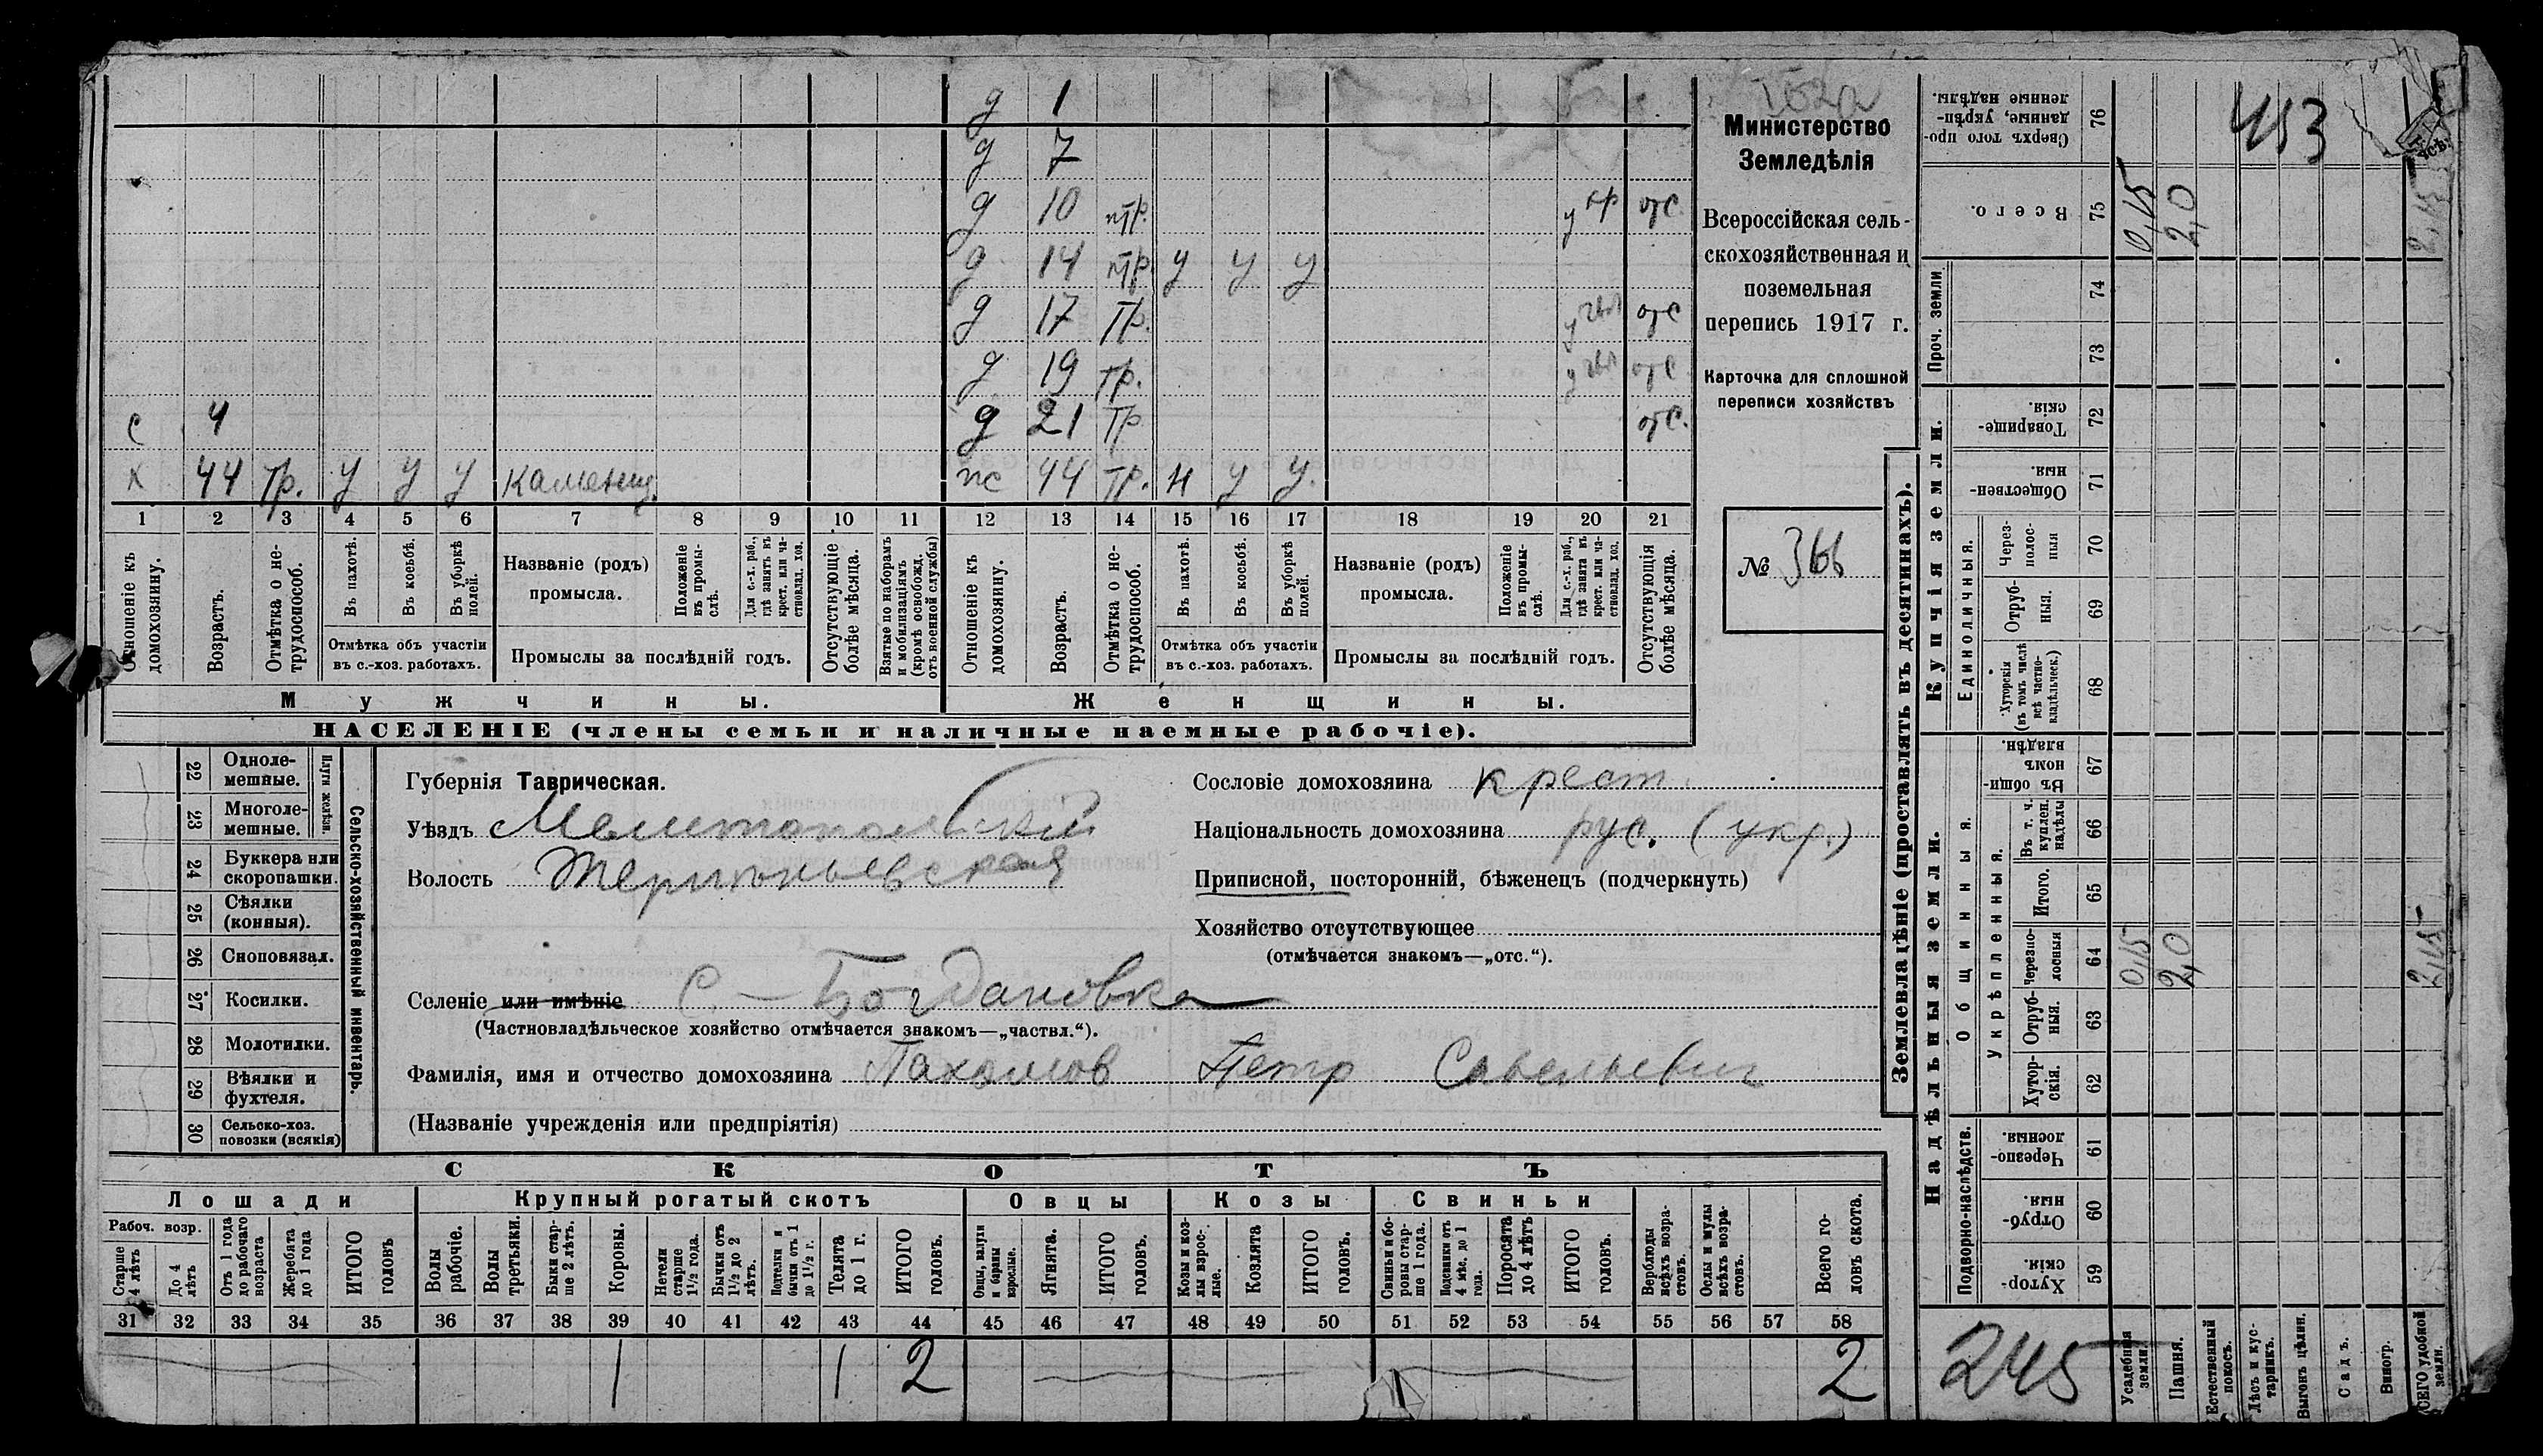 д 1
д 7
д 10 тр. у кр отс
д 14 тр. у у у
д 17 тр. отс
д 19 тр. отс
с 4 д 21 тр отс.
х 44 тр. у у у каменщ. ж 44 тр. н у у.
1 2 3 4 5 6 7 8 9 10 11 12 13 14 15 16 17 18 19 20 21
Отношеніе къ домохозяину.
Возрастъ.
Отмѣтка о не-трудоспособ.
Въ пахотѣ.
Въ косьбѣ.
Въ уборкѣ полей.
Отмѣтка объ участіи
въ с.-хоз. работахъ.
Названіе (родъ)
промысла.
Положеніе въ промы-слѣ.
Для с.-х. раб., гдѣ занятъ въ крест. или ча-стновлад. хоз.
Промыслы за послѣдній годъ.
Отсутствующіе болѣе мѣсяца.
Взятые по наборамъ и мобилизаціямъ (кромѣ освобожд. отъ военной службы)
Отношеніе къ домохозяину.
Возрастъ.
Отмѣтка о не-трудоспособ.
Въ пахотѣ.
Въ косьбѣ.
Въ уборкѣ полей.
Отмѣтка объ участіи
въ с.-хоз. работахъ.
Названіе (родъ)
промысла.
Положеніе въ промы-слѣ.
Для с.-х. раб., гдѣ занята въ крест. или ча-стновлад. хоз.
Промыслы за послѣдній годъ.
Отсутствующія болѣе мѣсяца.
Мужчины. Женщины.
НАСЕЛЕНІЕ (члены семьи и наличные наемные рабочіе).
Министерство
Земледѣлія
Всероссійская сель-
скохозяйственная и
поземельная
перепись 1917 г.
Карточка для сплошной
переписи хозяйствъ
№ 366
Сельско-хозяйственный инвентарь.
Плуги желѣзн.
22 Одноле-мешные.
23 Многоле-мешные.
24 Буккера или скоропашки.
25 Сѣялки (конныя).
26 Сноповязал.
27 Косилки.
28 Молотилки.
29 Вѣялки и фухтеля.
30 Сельско-хоз. повозки (всякія)
Губернія Таврическая.
Уѣздъ Мелитопольскій
Волость
Селеніе или имѣніе С. Богдановка
(Частновладѣльческое хозяйство отмѣчается знакомъ—„частвл.“).
Фамилія, имя и отчество домохозяина Пахомов Петр Савельевич
(Названіе учрежденія или предпріятія)
Сословіе домохозяина крест.
Національность домохозяина рус. (укр.)
Приписной, посторонній, бѣженецъ (подчеркнуть)
Хозяйство отсутствующее
(отмѣчается знакомъ—„отс.“).
СКОТЪ
Лошади Крупный рогатый скотъ Овцы Козы Свиньи
Рабоч. возр.
Старше 4 лѣтъ
До 4 лѣтъ
Отъ 1 года до рабочаго возраста
Жеребята до 1 года
ИТОГО головъ
Волы рабочіе.
Волы третьяки.
Быки стар-ше 2 лѣтъ.
Коровы.
Нетели старше 1½ года.
Бычки отъ 1½ до 2 лѣтъ.
Подтелки и бычки отъ 1 до 1½ г.
Телята до 1 г.
ИТОГО головъ.
Овцы, валухи и бараны взрослые.
Ягнята.
ИТОГО головъ.
Козы и коз-лы взрос-лые.
Козлята
ИТОГО головъ.
Свиньи и бо-ровы стар-ше 1 года.
Подсвинки отъ 4 мѣс. до 1 года.
Поросята до 4 лѣтъ
ИТОГО головъ.
Верблюды всѣхъ возра-стовъ.
Ослы и мулы всѣхъ возра-стовъ.
Всего го-ловъ скота.
31 32 33 34 35 36 37 38 39 40 41 42 43 44 45 46 47 48 49 50 51 52 53 54 55 56 57 58
1 1 2 2
Землевладѣніе (проставлять въ десятинахъ).
Сверхъ того про-данные, укрѣп-ленные надѣлы. 76
453
Всего. 75 0,15 2,0 2,15
Проч. земли 74
73
Купчія земли.
Товарище-скія. 72
Обществен-ныя. 71
Единоличныя.
Через-полос-ныя 70
Отруб-ныя. 69
Хуторскія (въ томъ числѣ всѣ частно-владѣльческ.) 68
Надѣльныя земли.
Общинныя.
Въ общи-номъ владѣн. 67
Укрѣпленныя.
Въ т. ч. куплен. надѣлы 66
Итого. 65
Черезпо-лосныя 64 0,15 2,0 2,15
Отруб-ныя. 63
Хутор-скія. 62
Подворно-наслѣдств.
Черезпо-лосныя. 61
Отруб-ныя. 60
Хутор-скія. 59
245
Усадебная земли.
Пашня.
Естественный покосъ.
Лѣсъ и кус-тарникъ.
Выгонъ цѣлин.
Садъ.
Виногр.
ВСЕГО удобной земли.